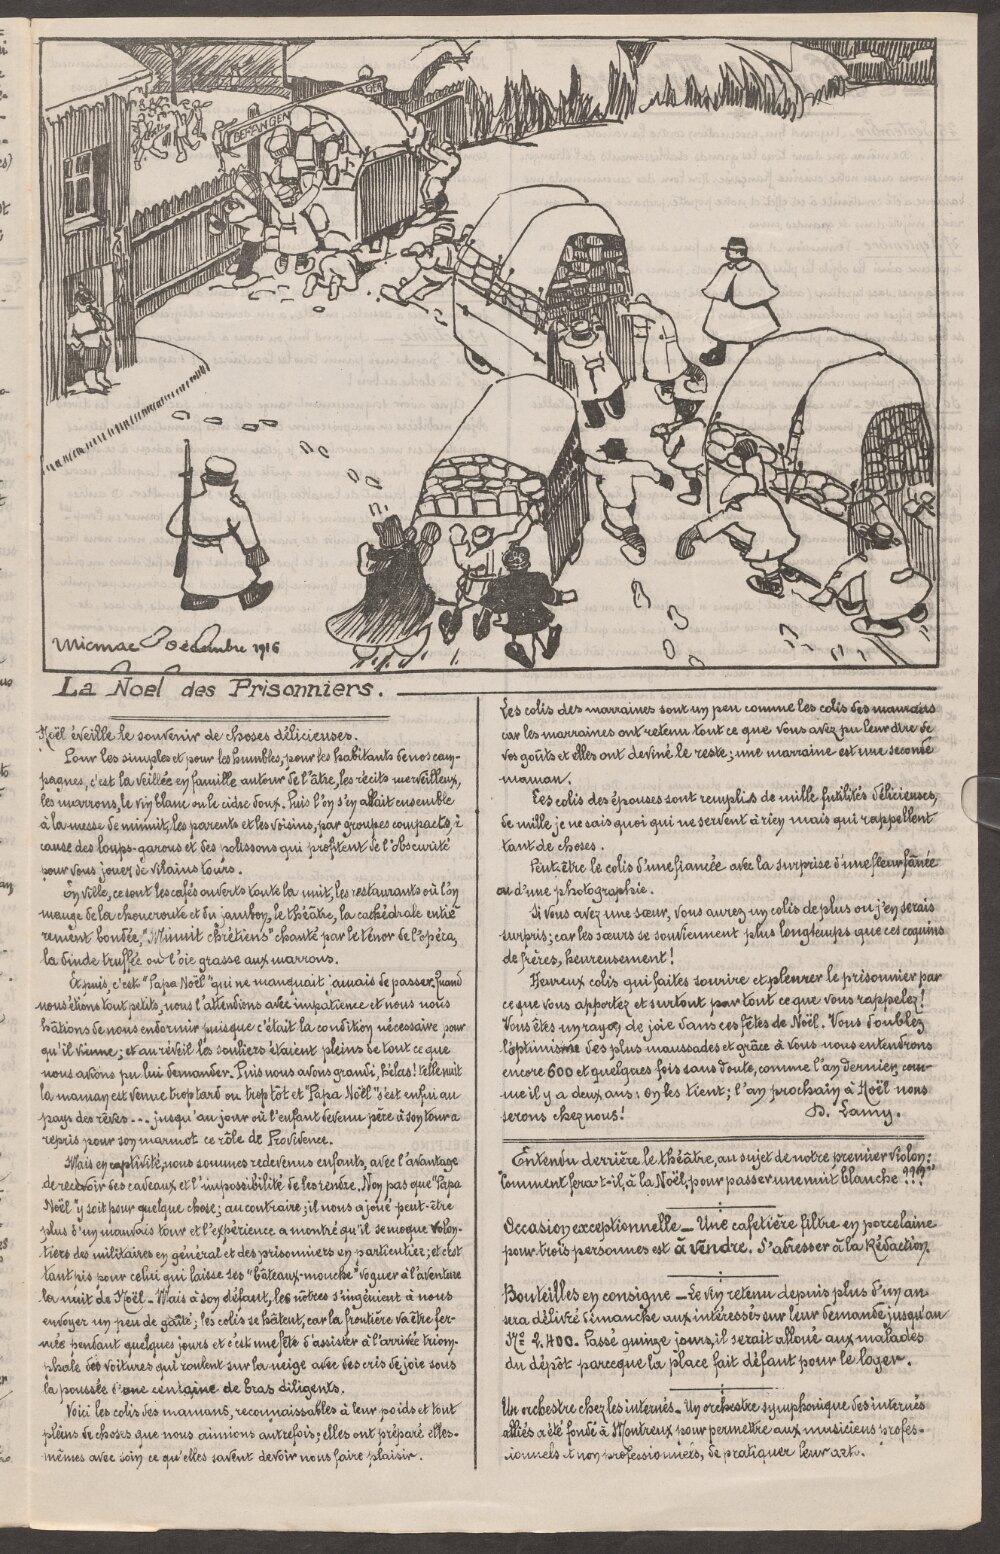 GEFANGEN
AGER
Micmac Décembre 1916
La Noel des Prisonniers.
Noël éveille le souvenir de choses délicieuses.
Pour les simples et pour les humbles, pour les habitants de nos cam-
pagnes, c'est la veillée en famille autour de l'âtre, les récits merveilleux,
les marrons, le vin blanc ou le cidre doux. Puis l'on s'en allait ensemble
à la messe de minuit, les parents et les voisins, par groupes compacts, à
cause des loups-garous et des polissons qui profitent de l'obscurité
pour vous jouer de vilains tours.
En ville, ce sont les cafés ouverts toute la nuit, les restaurants où l'on
mange de la choucroute et du jambon, le théâtre, la cathédrale entiè
rement bondée, "Minuit chrétiens" chanté par le ténor de l'opéra,
la dinde truffée ou l'oie grasse aux marrons.
Et puis, c'est "Papa Noël" qui ne manquait jamais de passer. Quand
nous étions tout petits, nous l'attendions avec impatience et nous nous
hâtions de nous endormir puisque c'était la condition nécessaire pour
qu'il vienne; et au réveil les souliers étaient pleins de tout ce que
nous avions pu lui demander. Puis nous avons grandi, hélas! telle nuit
la maman est venue trop tard ou trop tôt et "Papa Noël" s'est enfui au
pays des rêves... jusqu'au jour où l'enfant devenu père à son tour a
repris pour son marmot ce rôle de Providence.
Mais en captivité, nous sommes redevenus enfants, avec l'avantage
de recevoir des cadeaux et l'impossibilité de les rendre. Non pas que "Papa
Noël" y soit pour quelque chose; au contraire; il nous a joué peut-être
plus d'un mauvais tour et l'expérience a montré qu'il se moque volon-
tiers des militaires en général et des prisonniers en particulier; et c'est
tant pis pour celui qui laisse ses "bateaux-mouche" voguer à l'aventure
la nuit de Noël - Mais à son défaut, les nôtres s'ingénient à nous
envoyer un peu de gaîté; les colis se hâtent, car la frontière va être fer-
mée pendant quelques jours et c'est une fête d'assister à l'arrivée triom-
phale des voitures qui roulent sur la neige avec des cris de joie sous
la poussée d'une centaine de bras diligents.
Voici les colis des mamans, reconnaissables à leur poids et tout
pleins de choses que nous aimions autrefois; elles ont préparé elles-
mêmes avec soin ce qu'elles savent devoir nous faire plaisir.
Les colis des marraines sont un peu comme les colis des mamans
car les marraines ont retenu tout ce que vous avez pu leur dire de
vos goûts et elles ont deviné le reste; une marraine est une seconde
maman.
Les colis des épouses sont remplis de mille futilités délicieuses,
de mille je ne sais quoi qui ne servent à rien mais qui rappellent
tant de choses.
Peut-être le colis d'une fiancée avec la surprise d'une fleur fanée
ou d'une photographie.
Si vous avez une sœur, vous aurez un colis de plus ou j'en serais
surpris; car les sœurs se souviennent plus longtemps que ces coquins
de frères, heureusement!
Heureux colis qui faites sourire et pleurer le prisonnier par
ce que vous apportez et surtout par tout ce que vous rappelez!
Vous êtes un rayon de joie dans ces fêtes de Noël. Vous doublez
l'optimisme des plus maussades et grâce à vous nous entendrons
encore 600 et quelques fois sans doute, comme l'an dernier, com-
me il y a deux ans: On les tient; l'an prochain à Noël nous
serons chez nous! D. Lamy.
Entendu derrière le théâtre, au sujet de notre premier violon:
"Comment fera-t-il, à la Noël, pour passer une nuit blanche???"
Occasion exceptionnelle - Une cafetière filtre en porcelaine
pour trois personnes est à vendre. S'adresser à la Rédaction.
Bouteilles en consigne - Le vin retenu depuis plus d'un an
sera délivré dimanche aux intéressés sur leur demande jusqu'au
No 2.400. Passé quinze jours, il serait alloué aux malades
du dépôt parceque la place fait défaut pour le loger.
Un orchestre chez les internés - Un orchestre symphonique des internés
alliés a été fondé à Montreux pour permettre aux musiciens profes-
sionnels et non professionnels, de pratiquer leur art.